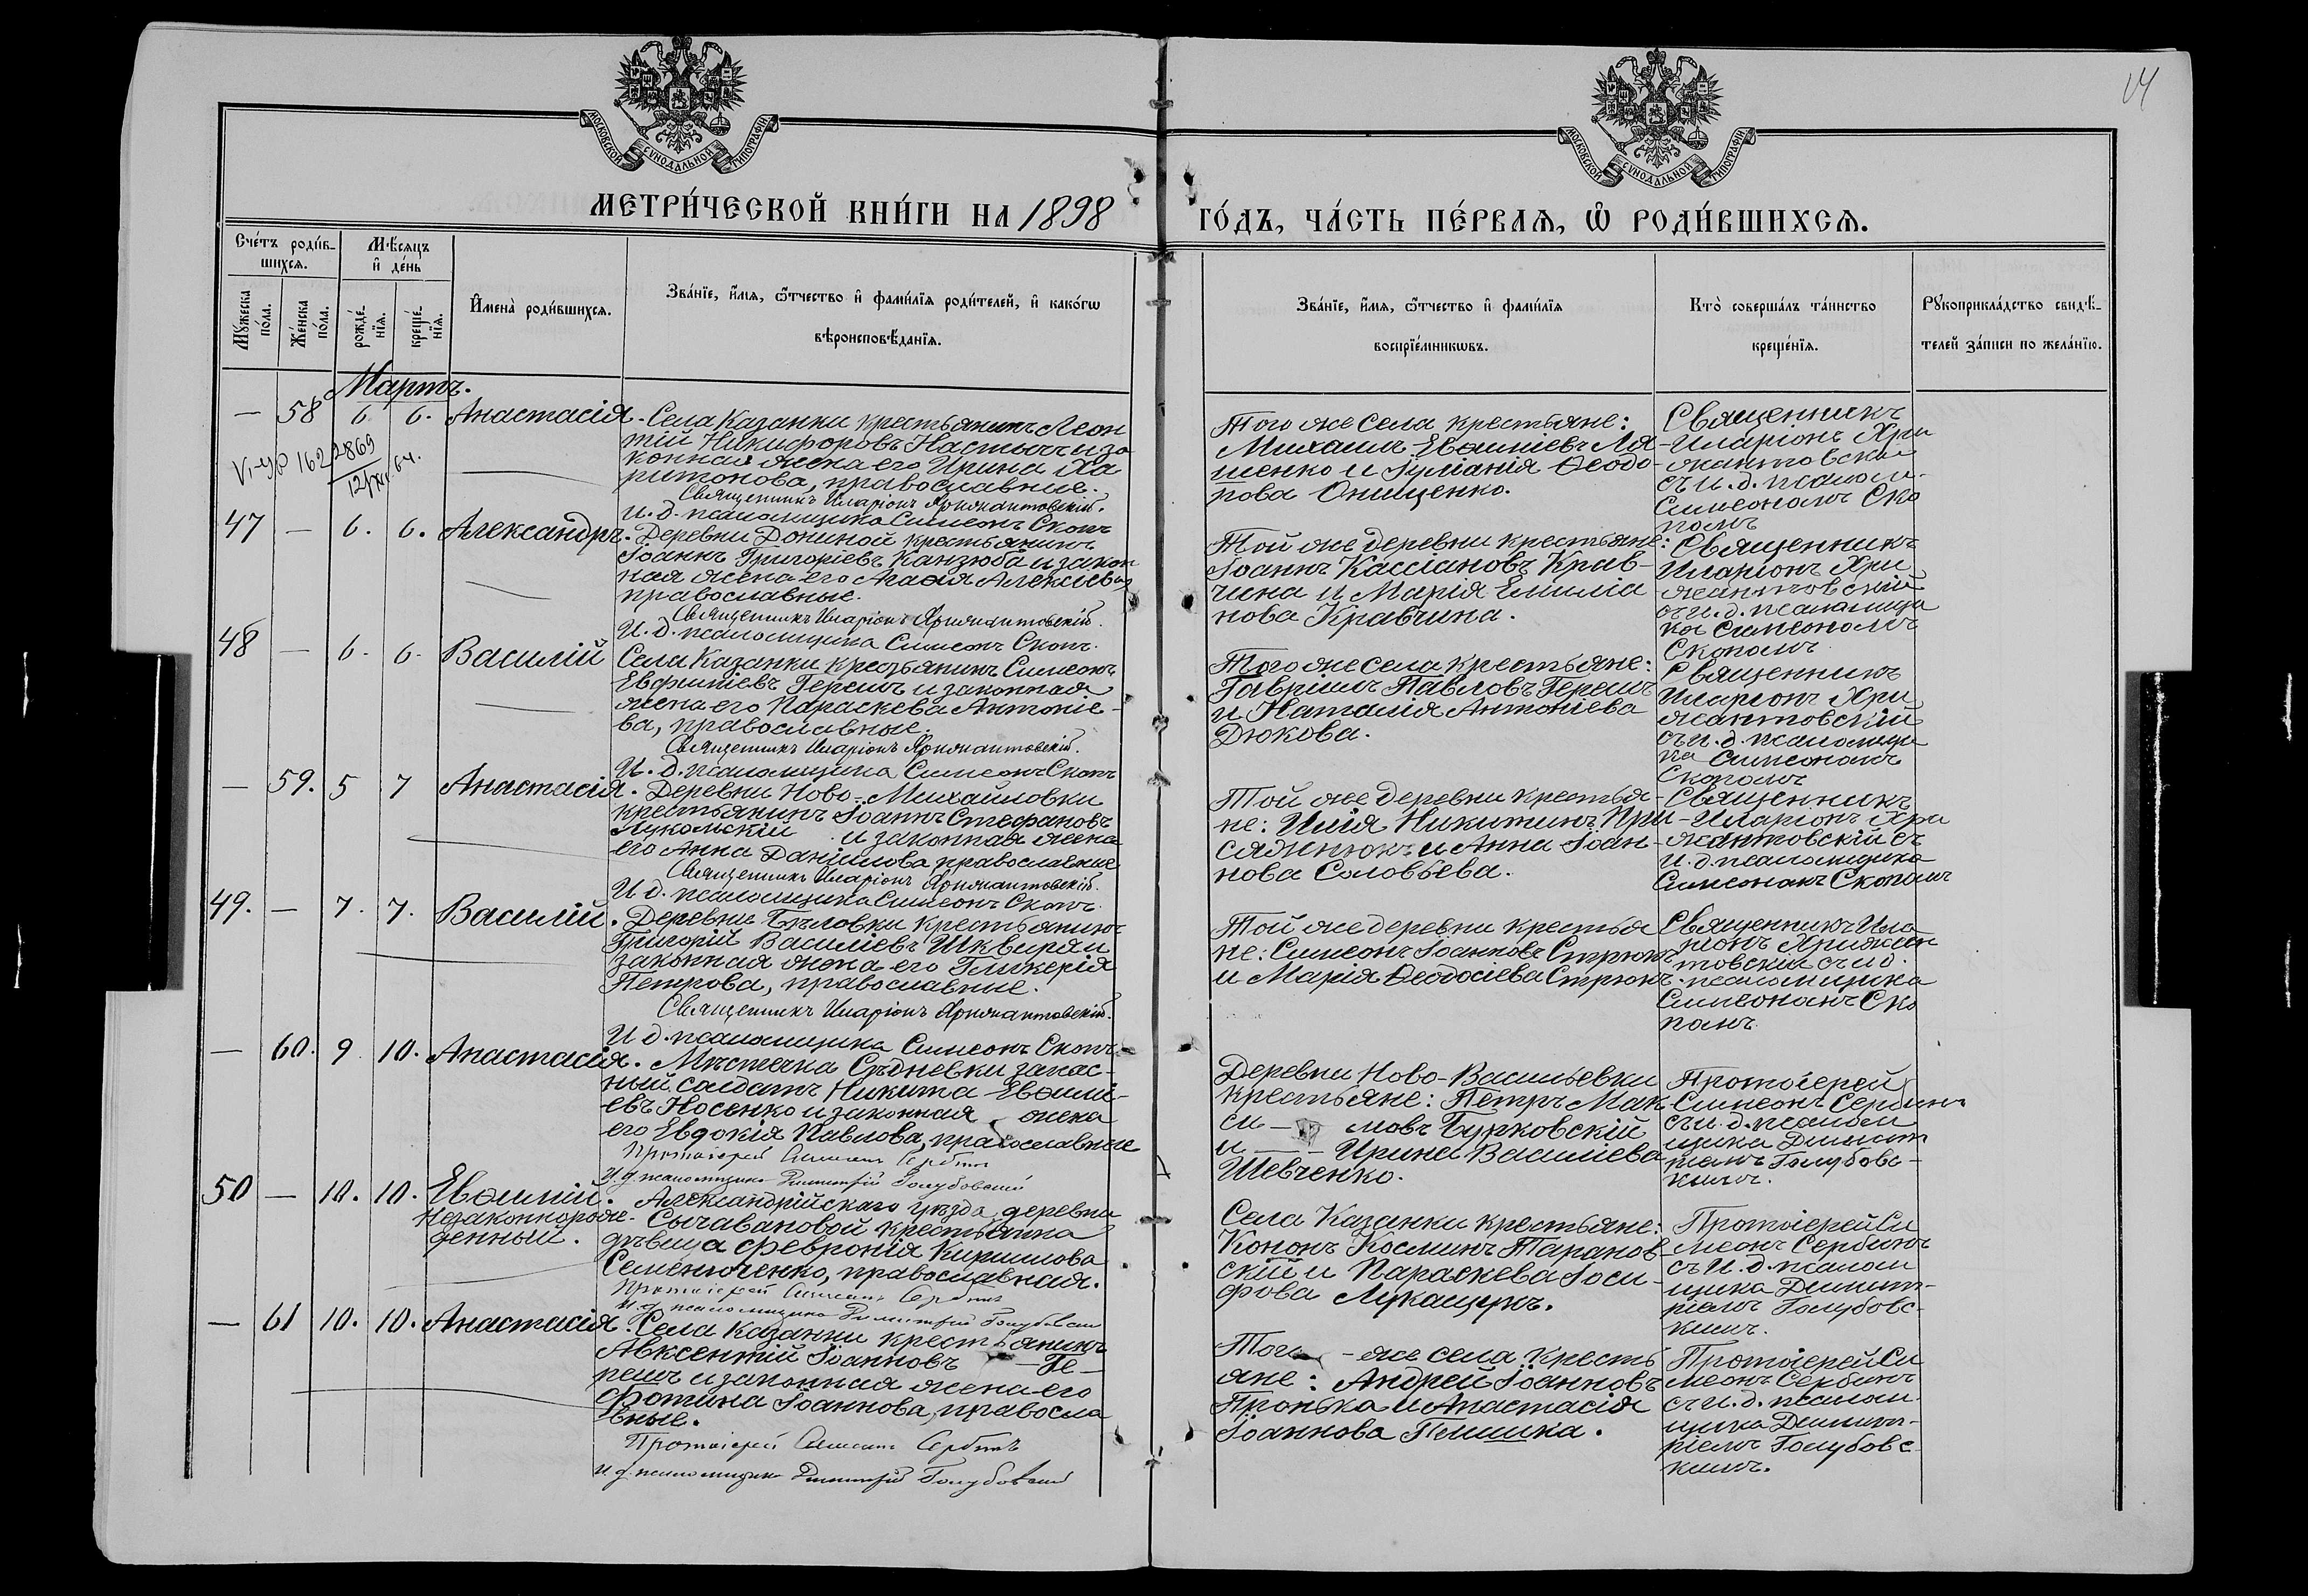 14
МОСКОВСКОЙ СѴНОДАЛЬНОЙ ТИПОГРАФІИ
МОСКОВСКОЙ СѴНОДАЛЬНОЙ ТИПОГРАФІИ
МЕТРИ́ЧЕСКОЙ КНИ́ГИ НА 1898
ГО́ДЪ, ЧА́СТЬ ПЕ́РВАѦ, Ѡ҆ РОДИ́ВШИХСѦ.
Сче́тъ роди́в-
шихсѧ.
Мꙋ́жеска
по́ла.
Же́нска
по́ла.
Мѣ́сѧцъ
и҆ де́нь
рожде́-
нїѧ.
креще́-
нїѧ.
И҆мена̀ роди́вшихсѧ.
Зва́нїе, и҆́мѧ, ѻ҆́тчество и҆ фами́лїѧ роди́телей, и҆ како́гѡ
вѣроисповѣ́данїѧ.
Зва́нїе, и҆́мѧ, ѻ҆́тчество и҆ фами́лїѧ
воспрїе́мникѡвъ.
Кто̀ соверша́лъ та́инство
креще́нїѧ.
Рꙋкоприкла́дство свидѣ́-
телей за́писи по жела́нїю.
Мартъ.
— 58 6 6. Анастасія
Села Казанки крестьянинъ Леон
тій Никифоровъ Настыч и за
конная жена его Ирина Ха
ритонова, православные.
Священникъ Иларіонъ Хрижантовскій.
И. д. псаломщика Симеонъ Скопъ
Того же села крестьяне:
Михаилъ Евѳиміевъ Ля
шенко и Іуліанія Ѳеодо-
рова Онищенко.
Священникъ
Иларіонъ Хри
жантовскій
съ и. д. псалом-
Симеономъ Ско
помъ
1622869
12/XII 64.
47 — 6. 6. Александръ.
Деревни Дониной крестьянинъ
Іоаннъ Григоріевъ Канзюба и закон
ная жена его Агаѳія Алексіева
православные.
Священникъ Иларіонъ Хрижантовскій.
И. д. псаломщика Симеонъ Скопъ.
Той же деревни крестьяне:
Іоаннъ Кассіановъ Крав-
чина и Марія Емилiа
нова Кравчина.
Священникъ
Иларіонъ Хри
жантовскій
съ и. д. псаломщи
ка Симеономъ
Скопомъ
48 — 6. 6. Василій
Села Казанки крестьянинъ Симеонъ
Евфиміевъ Герешъ и законная
жена его Параскева Антоніе-
ва, православные.
Священникъ Иларіонъ Хрижантовскій.
И. д. псаломщика Симеонъ Скопъ
Того же села крестьяне:
Гавріилъ Павловъ Герешъ
и Наталія Антоніева
Дюкова.
Священникъ
Иларіонъ Хри
жантовскій
съ и. д. псаломщи
ка Симеономъ
Скопомъ
— 59. 5 7 Анастасія.
Деревни Ново-Михайловки
крестьянинъ Іоаннъ Стефановъ
Лукомскій и законная жена
его Анна Даніилова православные
Священникъ Иларіонъ Хрижантовскій.
И д. псаломщика Симеонъ Скопъ.
Той же деревни крестья-
не: Илія Никитинъ При
сяжнюкъ и Анна Іоан-
нова Соловьева.
Священникъ
Иларіонъ Хри
жантовскій съ
и. д. псаломщика
Симеономъ Скопомъ
49. — 7. 7. Василій.
Деревни Бѣловки крестьянинъ
Григорій Василіевъ Шквиря и
законная жена его Гликерія
Петрова, православные.
Священникъ Иларіонъ Хрижантовскій.
И д. псаломщика Симеонъ Скопъ.
Той же деревни крестья
не: Симеонъ Іоанновъ Стрюкъ
и Марія Ѳеодосіева Стрюкъ.
Священникъ Ила
ріонъ Хрижан
товскій съ и д.
псаломщика
Симеономъ Ско
помъ.
— 60. 9 10. Анастасія.
Мѣстечка Сѣдневки запас-
ный солдатъ Никита Евѳимі-
евъ Носенко и законная жена
его Евдокія Павлова, православные
Протоіерей Симеонъ Сербинъ
И. д. псаломщика Димитрій Голубовскій
Деревни Ново-Васильевки
крестьяне: Петръ Мак
си — мовъ Бурковскій
и — Ирина Василіева
Шевченко.
Протоіерей
Симеонъ Сербинъ
съ и. д. псалом
щика Димит
ріемъ Голубовс-
кимъ.
50 — 10. 10. Евѳимій.
Незаконнорож-
денный.
Александрійскаго уѣзда деревни
Сычавановой крестьянка
дѣвица Февронія Кириллова
Семенюченко, православная.
Протоіерей Симеонъ Сербинъ
И. д. псаломщика Димитрій Голубовскій
Села Казанки крестьяне:
Кононъ Косминъ Таранов-
скій и Параскева Іоси-
фова Лукащукъ.
Протоіерей Си
меонъ Сербинъ
съ и. д. псалом
щика Димит-
ріемъ Голубовс-
кимъ.
— 61 10. 10. Анастасія.
Села Казанки крестьянинъ
Авксентій Іоанновъ — Ге-
решъ и законная жена его
Фотина Іоаннова, правосла
вные.
Протоіерей Симеонъ Сербинъ
И д. псаломщика Димитрій Голубовскій
Того — же села кресть
яне: Андрей Іоанновъ
Пронька и Анастасія
Іоаннова Пишка.
Протоіерей Си
меонъ Сербинъ
съ и. д. псалом
щика Димит-
ріемъ Голубовс
кимъ.